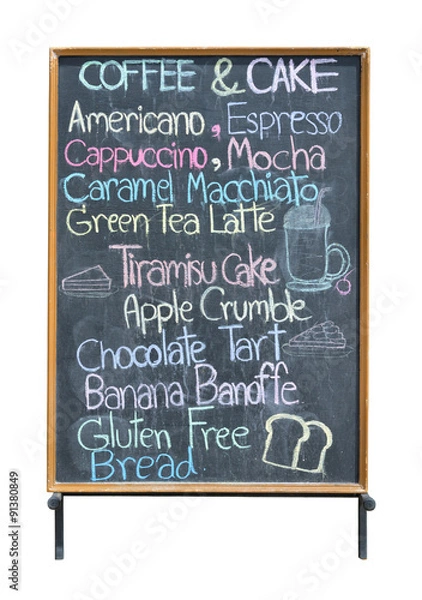 COFFEE & CAKE
Americano, Espresso
Cappuccino, Mocha
Caramel Macchiato
Green Tea Latte
Tiramisu Cake
Apple Crumble
Chocolate Tart
Banana Banoffe
Gluten Free
Bread
Adobe Stock | #91380849